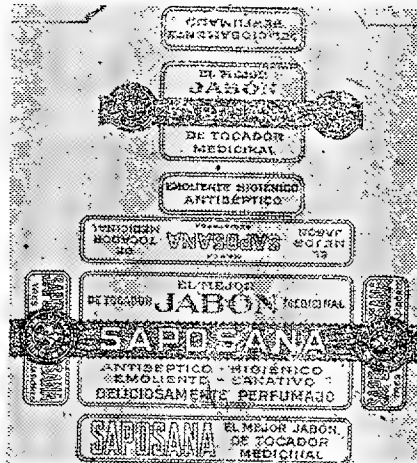 DELICIOSAMENTE
PERFUMADO
EL MEJOR
JABON
DE TOCADOR
MEDICINAL
EMOLIENTE HIGIENICO
ANTISÉPTICO
EL
MEJOR
JABON
MARCA
SAPOSANA
DE
TOCADOR
MEDICINAL
EL MEJOR
DE TOCADOR JABON MEDICINAL
SAPOSANA
ANTISEPTICO - HIGIÉNICO
EMOLIENTE - CURATIVO
DELICIOSAMENTE PERFUMADO
SAPOSANA
EL MEJOR JABÓN
DE TOCADOR
MEDICINAL